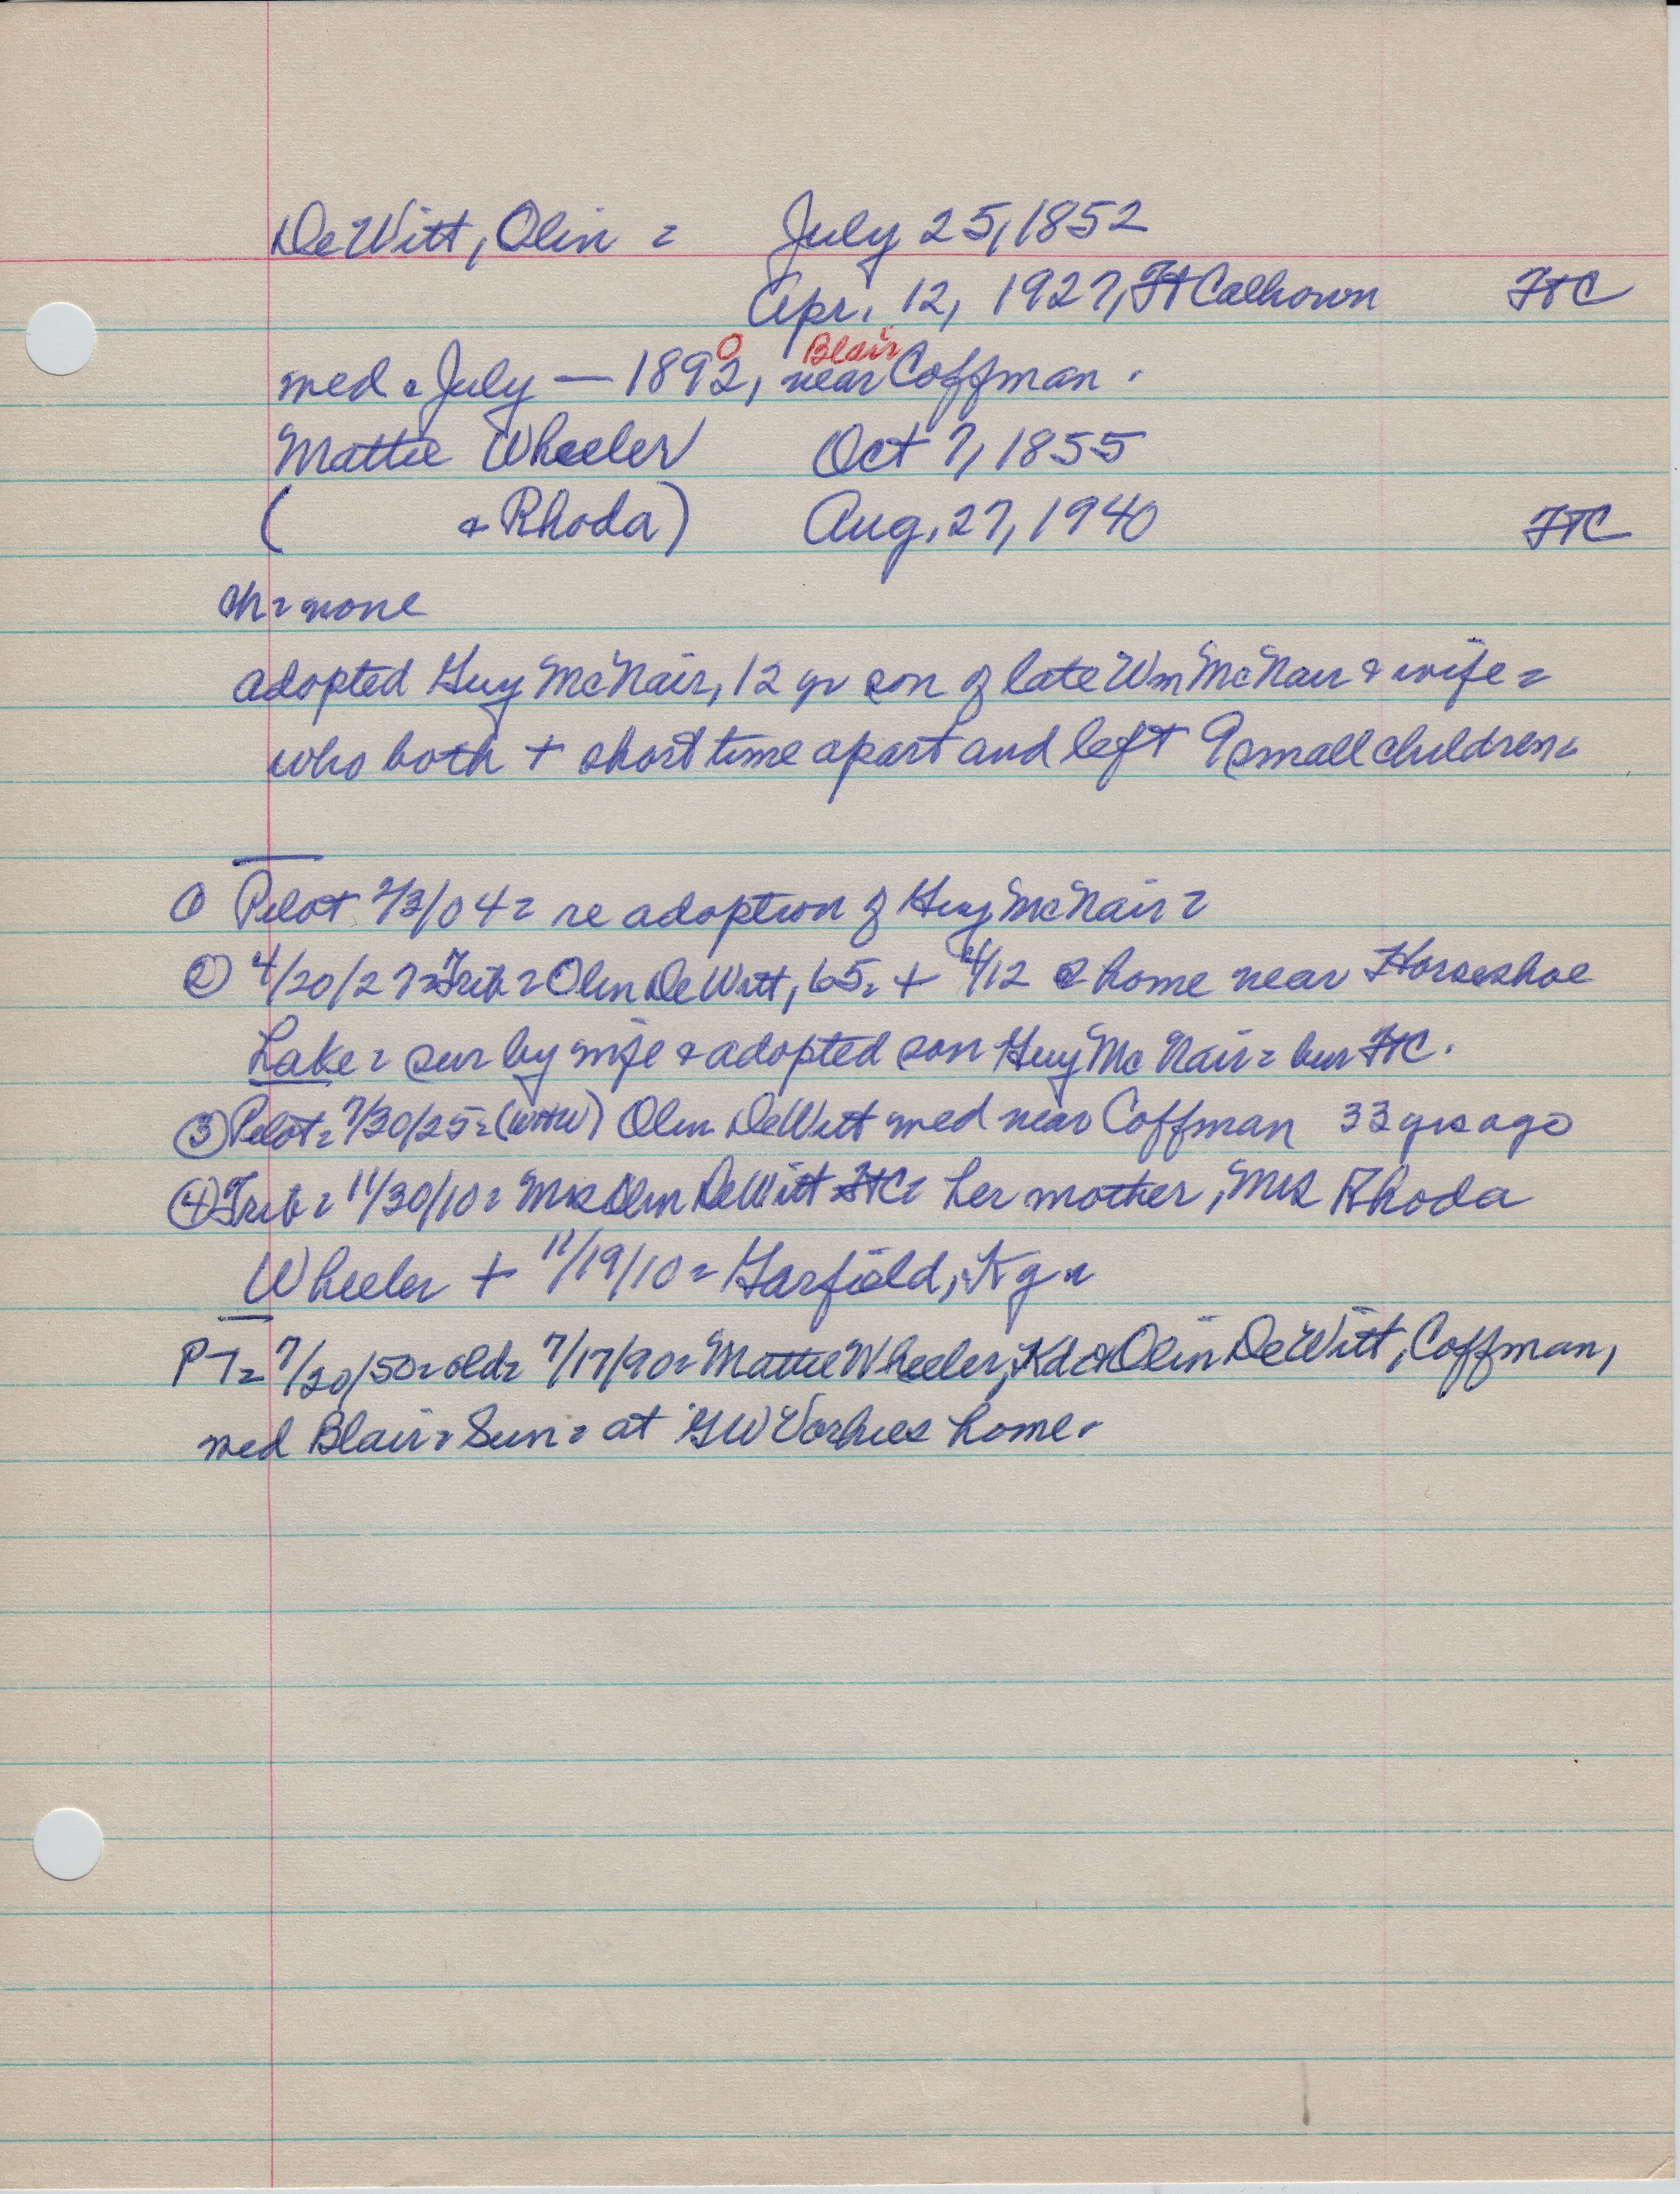 DeWitt, Olin = July 25, 1852
Apr. 12, 1927, Ft Calhoun FtC
0 Blair
med = July — 1892, near Coffman.
Mattie Wheeler Oct 7, 1855
( & Rhoda) Aug. 27, 1940 FtC
ch = none
adopted Guy McNair, 12 yr son of late Wm McNair & wife =
who both + short time apart and left 9 small children =
① Pilot 2/3/04 = re adoption of Guy McNair =
② 4/20/27 = Trib = Olin DeWitt, 65. + 4/12 @ home near Horseshoe
Lake = sur by wife & adopted son Guy McNair = bur FtC.
③ Pilot = 7/30/25 = Olin DeWitt med near Coffman 33 yrs ago
④ Trib = 11/30/10 = Mrs Olin DeWitt FtC = her mother, Mrs Rhoda
Wheeler + 11/19/10 = Garfield, Ky =
PT = 7/20/50 = old = 7/17/90 = Mattie Wheeler, & Olin DeWitt, Coffman,
med Blair = Sun = at GW Vorhees home.